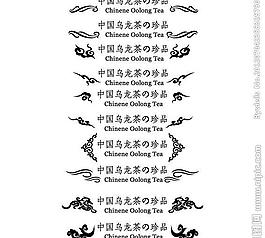 中国乌龙茶の珍品
Chinene Oolong Tea
中国乌龙茶の珍品
Chinene Oolong Tea
中国乌龙茶の珍品
Chinene Oolong Tea
中国乌龙茶の珍品
Chinene Oolong Tea
中国乌龙茶の珍品
Chinene Oolong Tea
中国乌龙茶の珍品
Chinene Oolong Tea
中国乌龙茶の珍品
Chinene Oolong Tea
中国乌龙茶の珍品
Chinene Oolong Tea
中国乌龙茶の珍品
Chinene Oolong Tea
中国乌龙茶の珍品
Chinene Oolong Tea
www.nipic.com